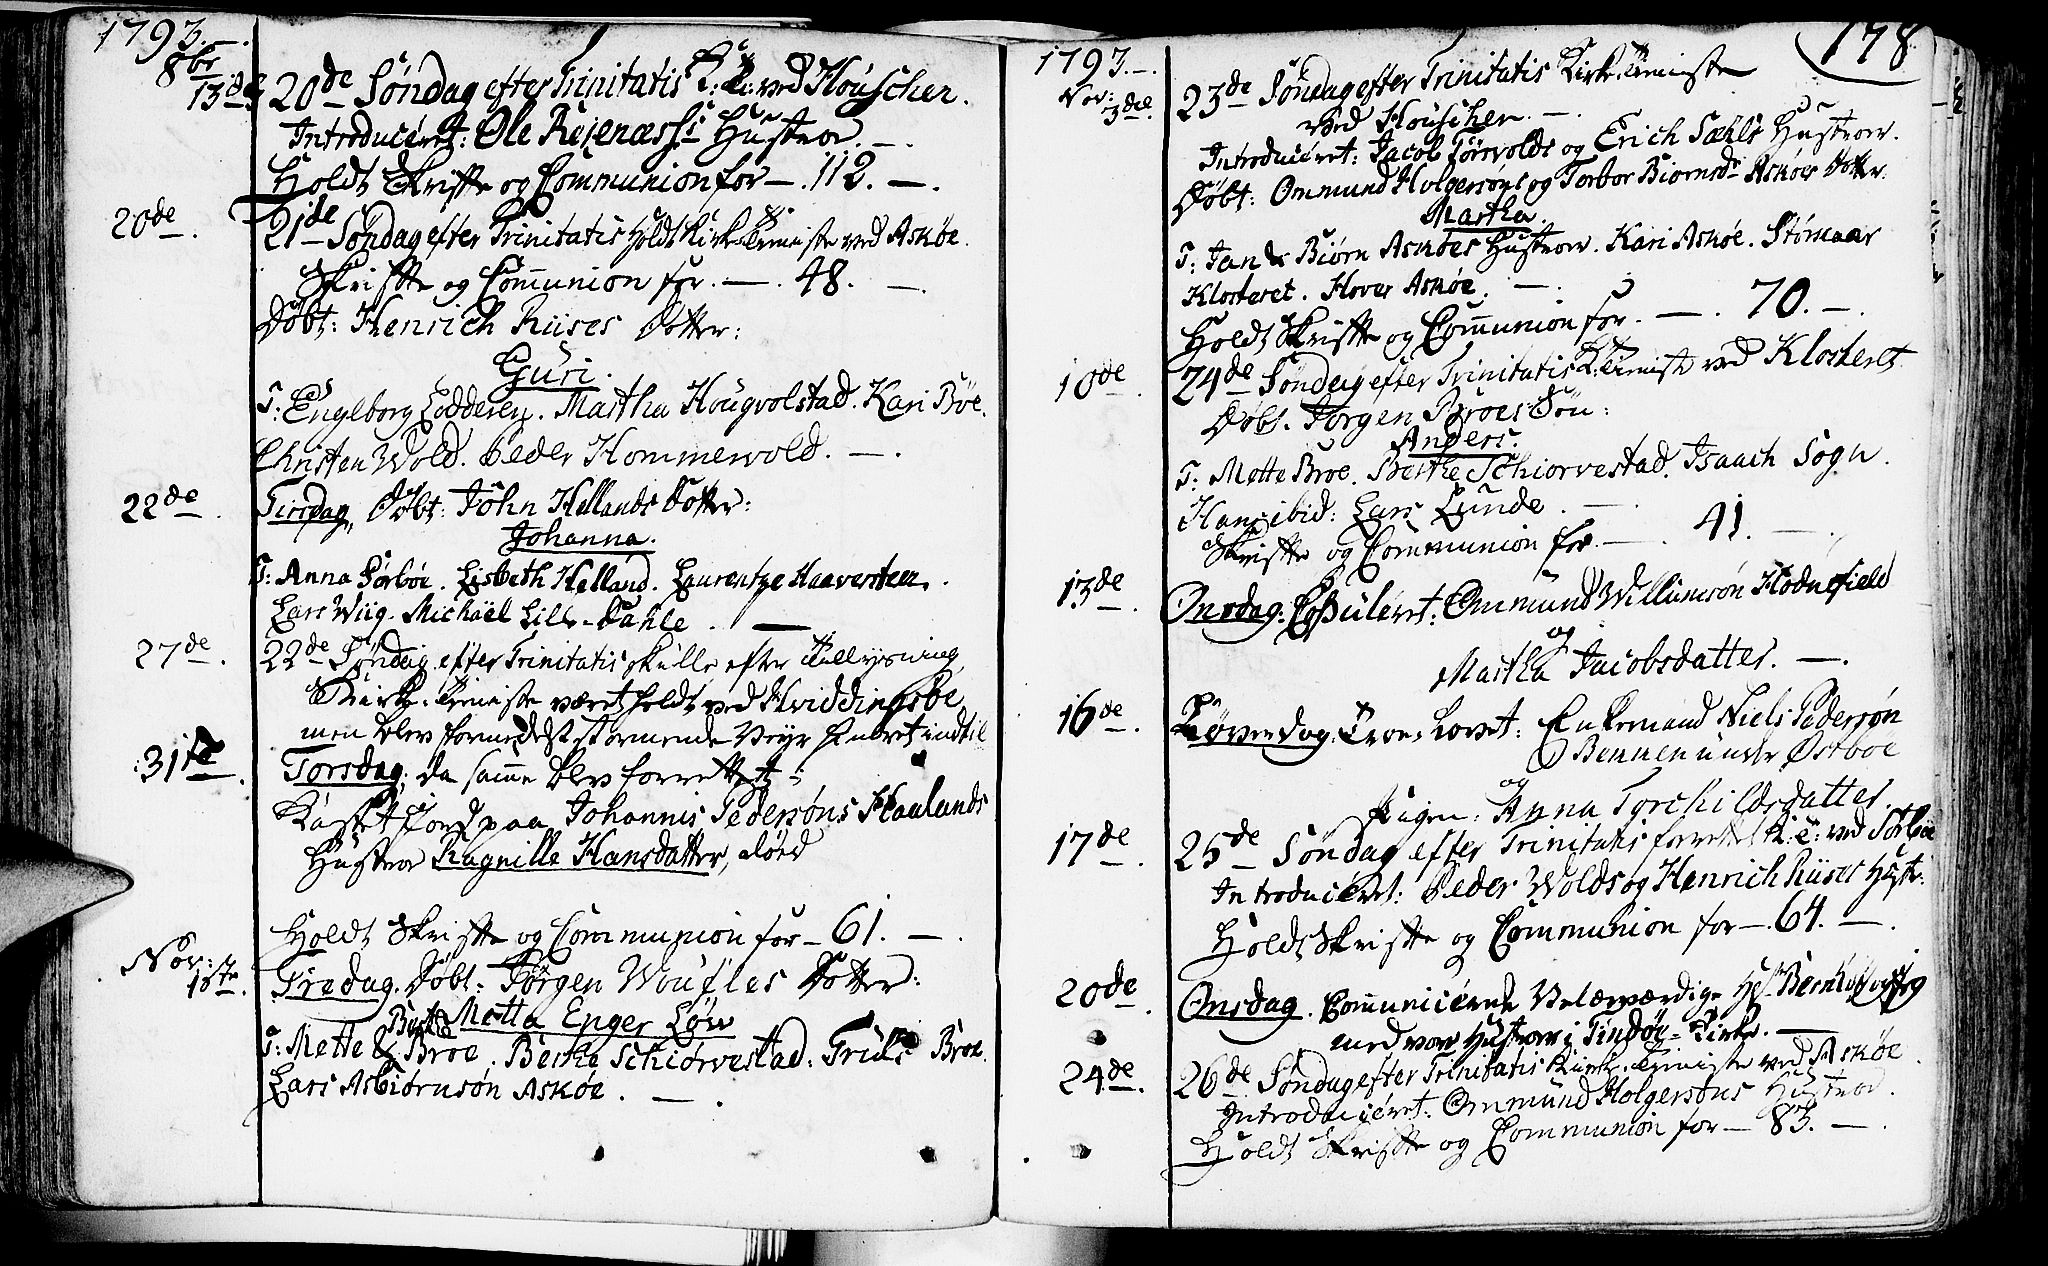 1793.
8br
13de 20de Søndag efter Trinitatis K: T: ved Houscher.
Introduceret: Ole Reienæss's Hustroe. -
Holdt Skrifte og Communion for -. 112. -.
20de. 21de Søndag efter Trinitatis holdt Kirke Tieniste ved Askøe.
Skrifte og Communion for. -. 48. -
Døbt: Henrich Riises Dotter:
Guri.
T: Engleborg Lodderen. Martha Hougvolstad. Kari Bøe.
Christen Wold. Peder Hommervold. -.
22de. Tirsdag, Døbt: John Hellands Dotter:
Johanna.
T: Anna Sørbøe. Lisbeth Helland. Laurentze Haaversteen.
Lars Wiig. Michael Lille-Dahle. -
27de. 22de Søndag efter Trinitatis skulle efter Tillysning
Kirke-Tieniste været holdt ved Hviddingsøe
men blev formedelst stormende Veyr hindret indtil
31te. Torsdag, da samme blev forrettet;
Kastet Jord paa Johannis Pedersøns Haalands
Hustroe Ragnille Hansdatter, døed
Holdt Skrifte og Communion for - 61. -.
Nov:
1ste. Fredag. Døbt: Jørgen Woufles Dotter:
Berthe Metta Enger Løw
T: Mette Broe. Berthe Schiørvestad. Truls Broe.
Lars Asbiørnsøn Askøe. -.
178
1793.-.
Nov:
3die. 23de Søndag efter Trinitatis Kirke Tieniste
ved Houscher. -.
Introduceret: Jacob Førsvolds og Erich Sæhls Hustroer.
Døbt: Ommund Holgersøns og Torbor Biørnsd: Askøes Dotter:
Martha.
T: Jan & Biørn Askøes Hustroer. Kari Askøe. Størkaar
Klosteret. Hover Askøe. -.
Holdt Skrifte og Communion for. -. 70. -.
10de. 24de Søndag efter Trinitatis K: Tieniste ved Klosteret
Døbt. Jørgen Broes Søn:
Anders.
T: Mette Broe. Berthe Schiorvestad. Isaach Sogn.
Hans ibid: Lars Lunde. -.
Skrifte og Communion for. -. 41. -.
13de. Onsdag: Copuleret: Ommund Willumsøn Hodnefield
og
Martha Jacobsdatter. -.
16de. Løverdag: Troelovet: Enkemand Niels Pedersøn
Bennen under Østbøe
og
Pigen: Anna Torchildsdatter.
17de. 25de Søndag efter Trinitatis forrettet K: T: ved Sørbøe
Introduceret: Peder Wolds og Henrich Riises Hustr:
Holdt Skrifte og Communion for -. 64. -.
20de. Onsdag. Communicerede Velærværdige Hr
med vor Hustroe i Findøe-Kirke. -
24de. 26de Søndag efter Trinitatis Kirke-Tieniste ved Askøe.
Introduceret: Ommund Holgersøns Hustroe.
Holdt Skrifte og Communion for - 83. -.